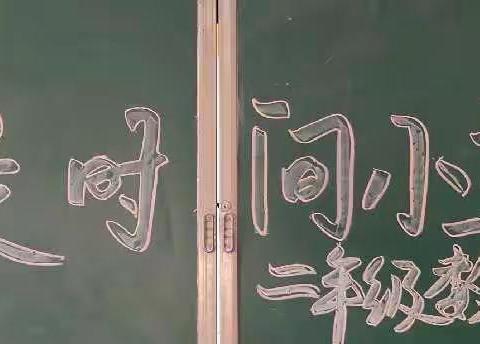 时间小
二年级数